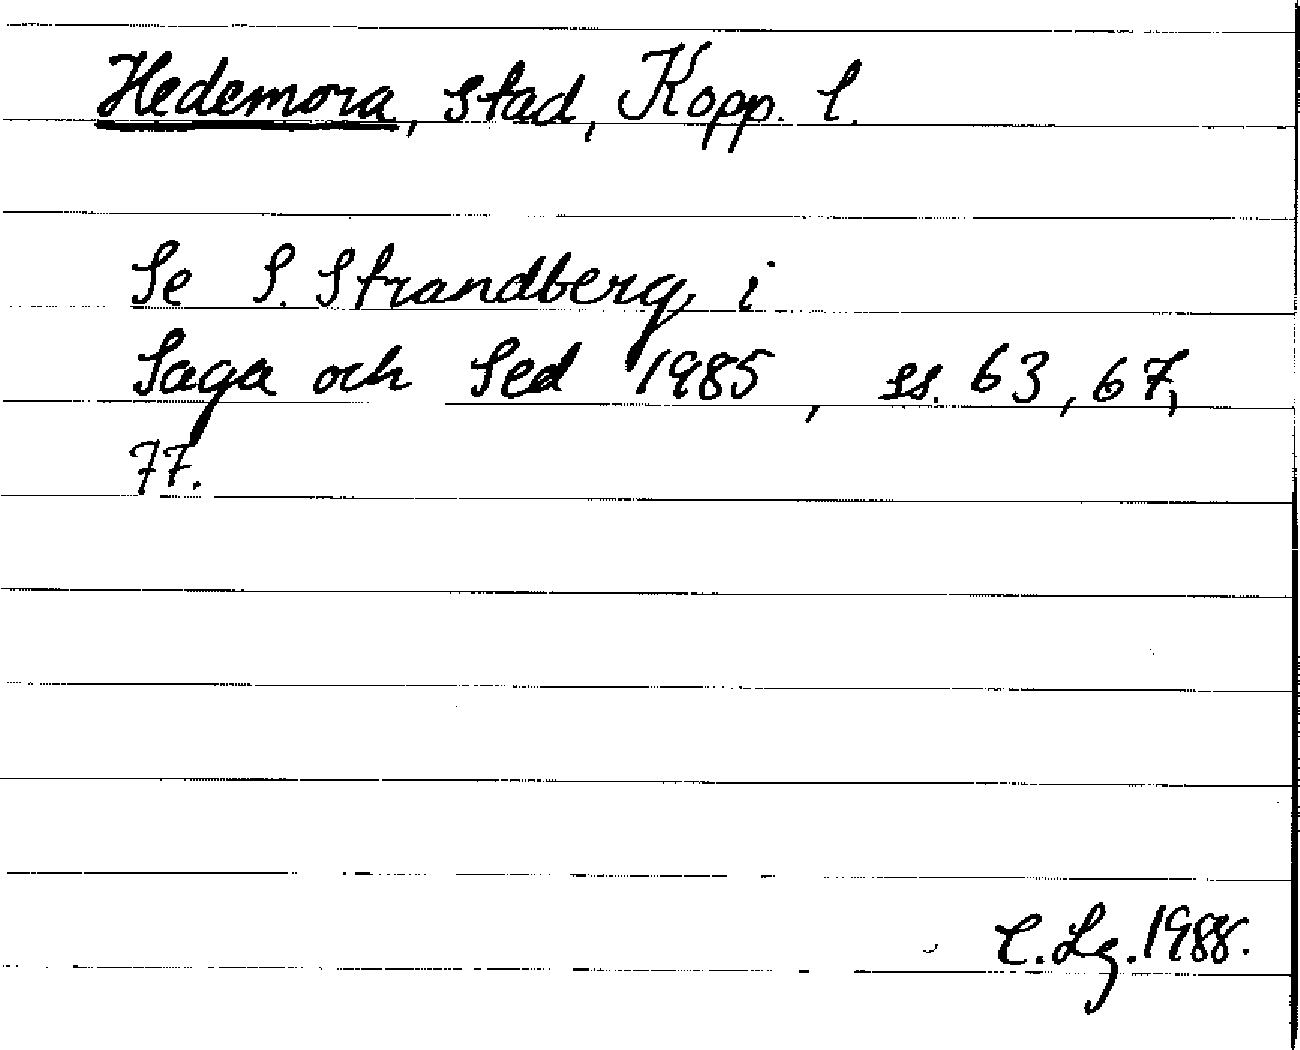 Hedemora, stad, Kopp. l.
Se S. Strandberg i
Saga och Sed 1985, ss. 63, 67,
77.
C. Lg. 1988.